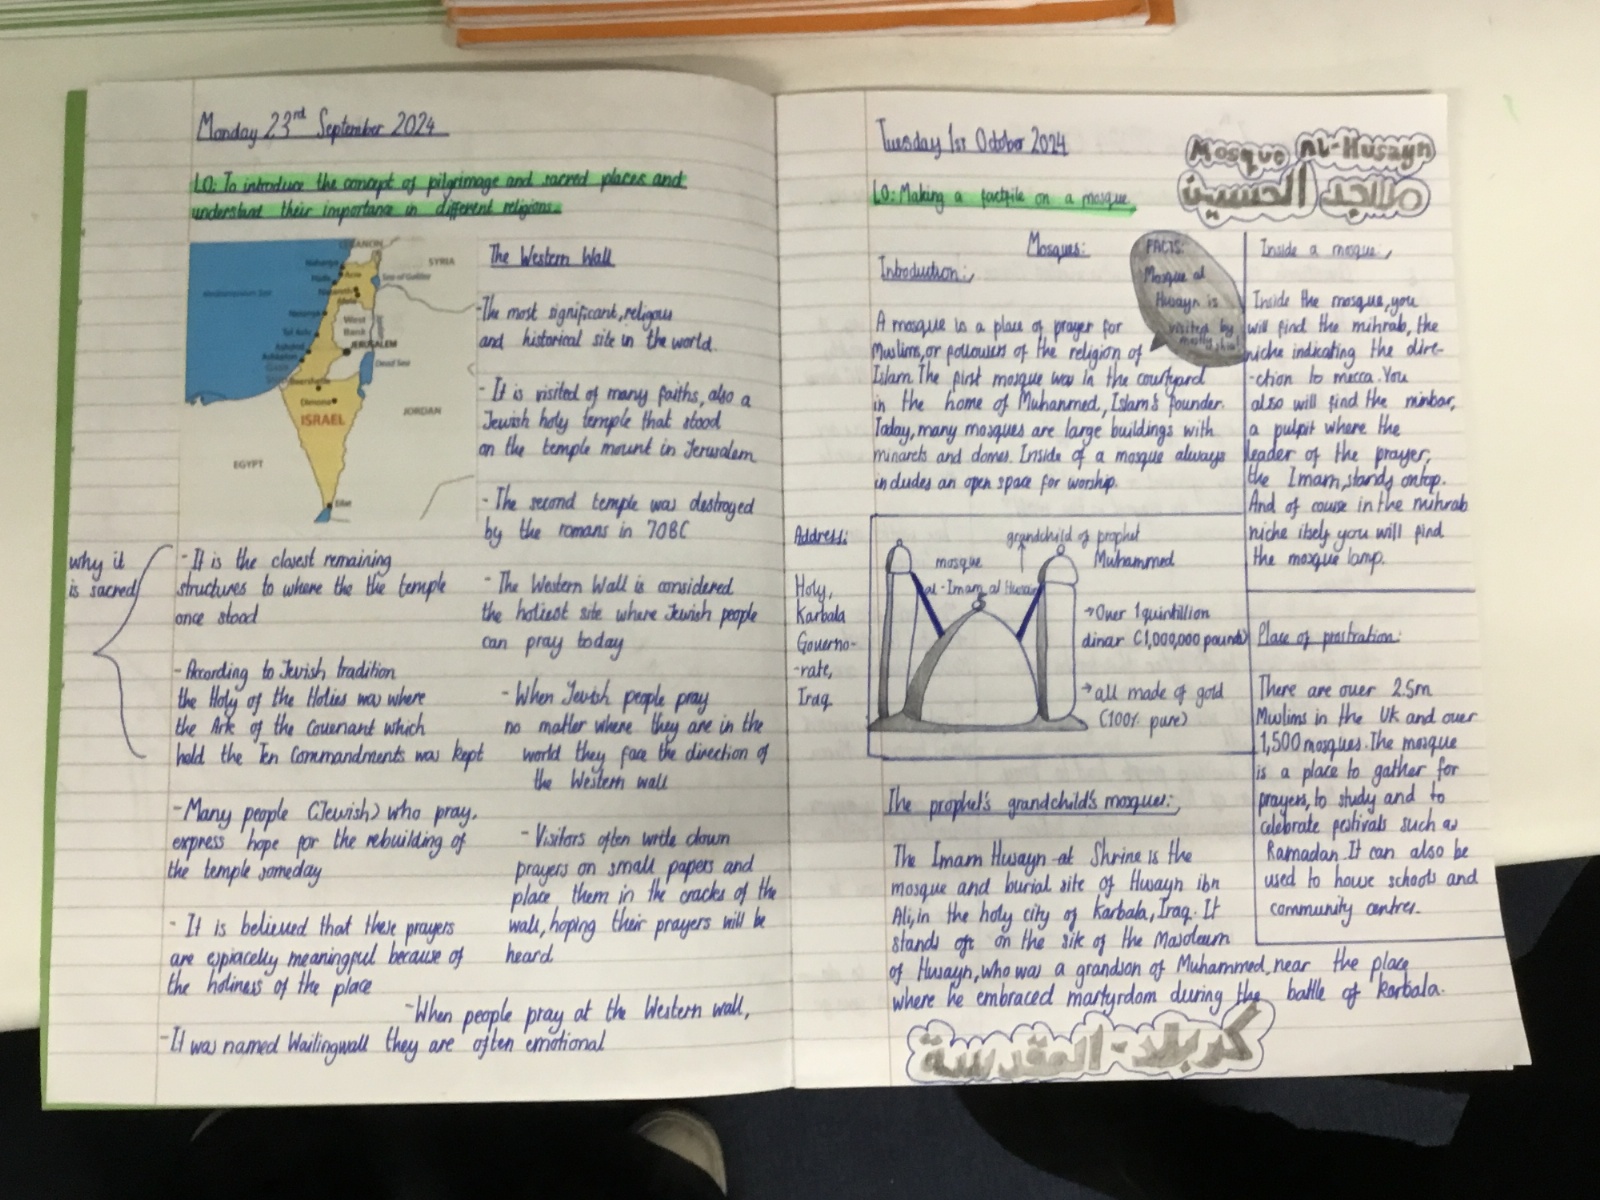 Monday 23rd September 2024
LO: To introduce the concept of pilgrimage and sacred places and
understant their importance in different religions.
LEBANON
SYRIA
Mediterranean Sea
Sea of Galilee
West
Bank
JERUSALEM
Dead Sea
Tel Aviv
Beersheba
Dimona
ISRAEL
JORDAN
EGYPT
Eilat
The Western Wall
-The most significant, religous
and historical site in the world.
- It is visited of many faiths, also a
Jewish holy temple that stood
on the temple mount in Jerusalem
- The second temple was destroyed
by the romans in 70BC
why it
is sacred
- It is the closest remaining
structures to where the the temple
once stood
- According to Jewish tradition
the Holy of the Holies was where
the Ark of the Covenant which
held the Ten Commandments was kept
- Many people (Jewish) who pray,
express hope for the rebuilding of
the temple someday
- It is believed that these prayers
are espiacelly meaningful because of
the holiness of the place
- It was named Wailingwall
- The Western Wall is considered
the holiest site where Jewish people
can pray today
- When Jewish people pray
no matter where they are in the
world they face the direction of
the Western wall
- Visitors often write down
prayers on small papers and
place them in the cracks of the
wall, hoping their prayers will be
heard
-When people pray at the Western wall,
they are often emotional
Tuesday 1st October 2024
LO: Making a factfile on a mosque
Mosque Al-Husayn
الحسين
Mosques:
Introduction:
A mosque is a place of prayer for
Muslims, or followers of the religion of
Islam. The first mosque was in the courtyard
in the home of Muhammed, Islam's founder.
Today, many mosques are large buildings with
minarets and domes. Inside of a mosque always
includes an open space for worship.
FACTS:
Mosque al
Husayn is
visited by
mostly
Inside a mosque:
Inside the mosque, you
will find the mihrab, the
niche indicating the dire-
-ction to mecca. You
also will find the minbar,
a pulpit where the
leader of the prayer,
the Imam, stands ontop.
And of course in the mihrab
niche itsely you will find
the mosque lamp.
Address:
Holy,
Karbala
Governo-
-rate,
Iraq
mosque
al-Imam al Husain
grandchild of prophet
Muhammed
→Over 1quintillion
dinar (1,000,000 pounds)
→all made of gold
(100% pure)
Place of prostration:
There are over 2.5m
Muslims in the UK and over
1,500 mosques. The mosque
is a place to gather for
prayers, to study and to
celebrate festivals such as
Ramadan. It can also be
used to house schools and
community centres.
The prophet's grandchild's mosque:
The Imam Husayn Shrine is the
mosque and burial site of Husayn ibn
Ali, in the holy city of Karbala, Iraq. It
stands on the site of the Masoleum
of Husayn, who was a grandson of Muhammed, near the place
where he embraced martyrdom during the battle of karbala.
كربلاء-المقدسة